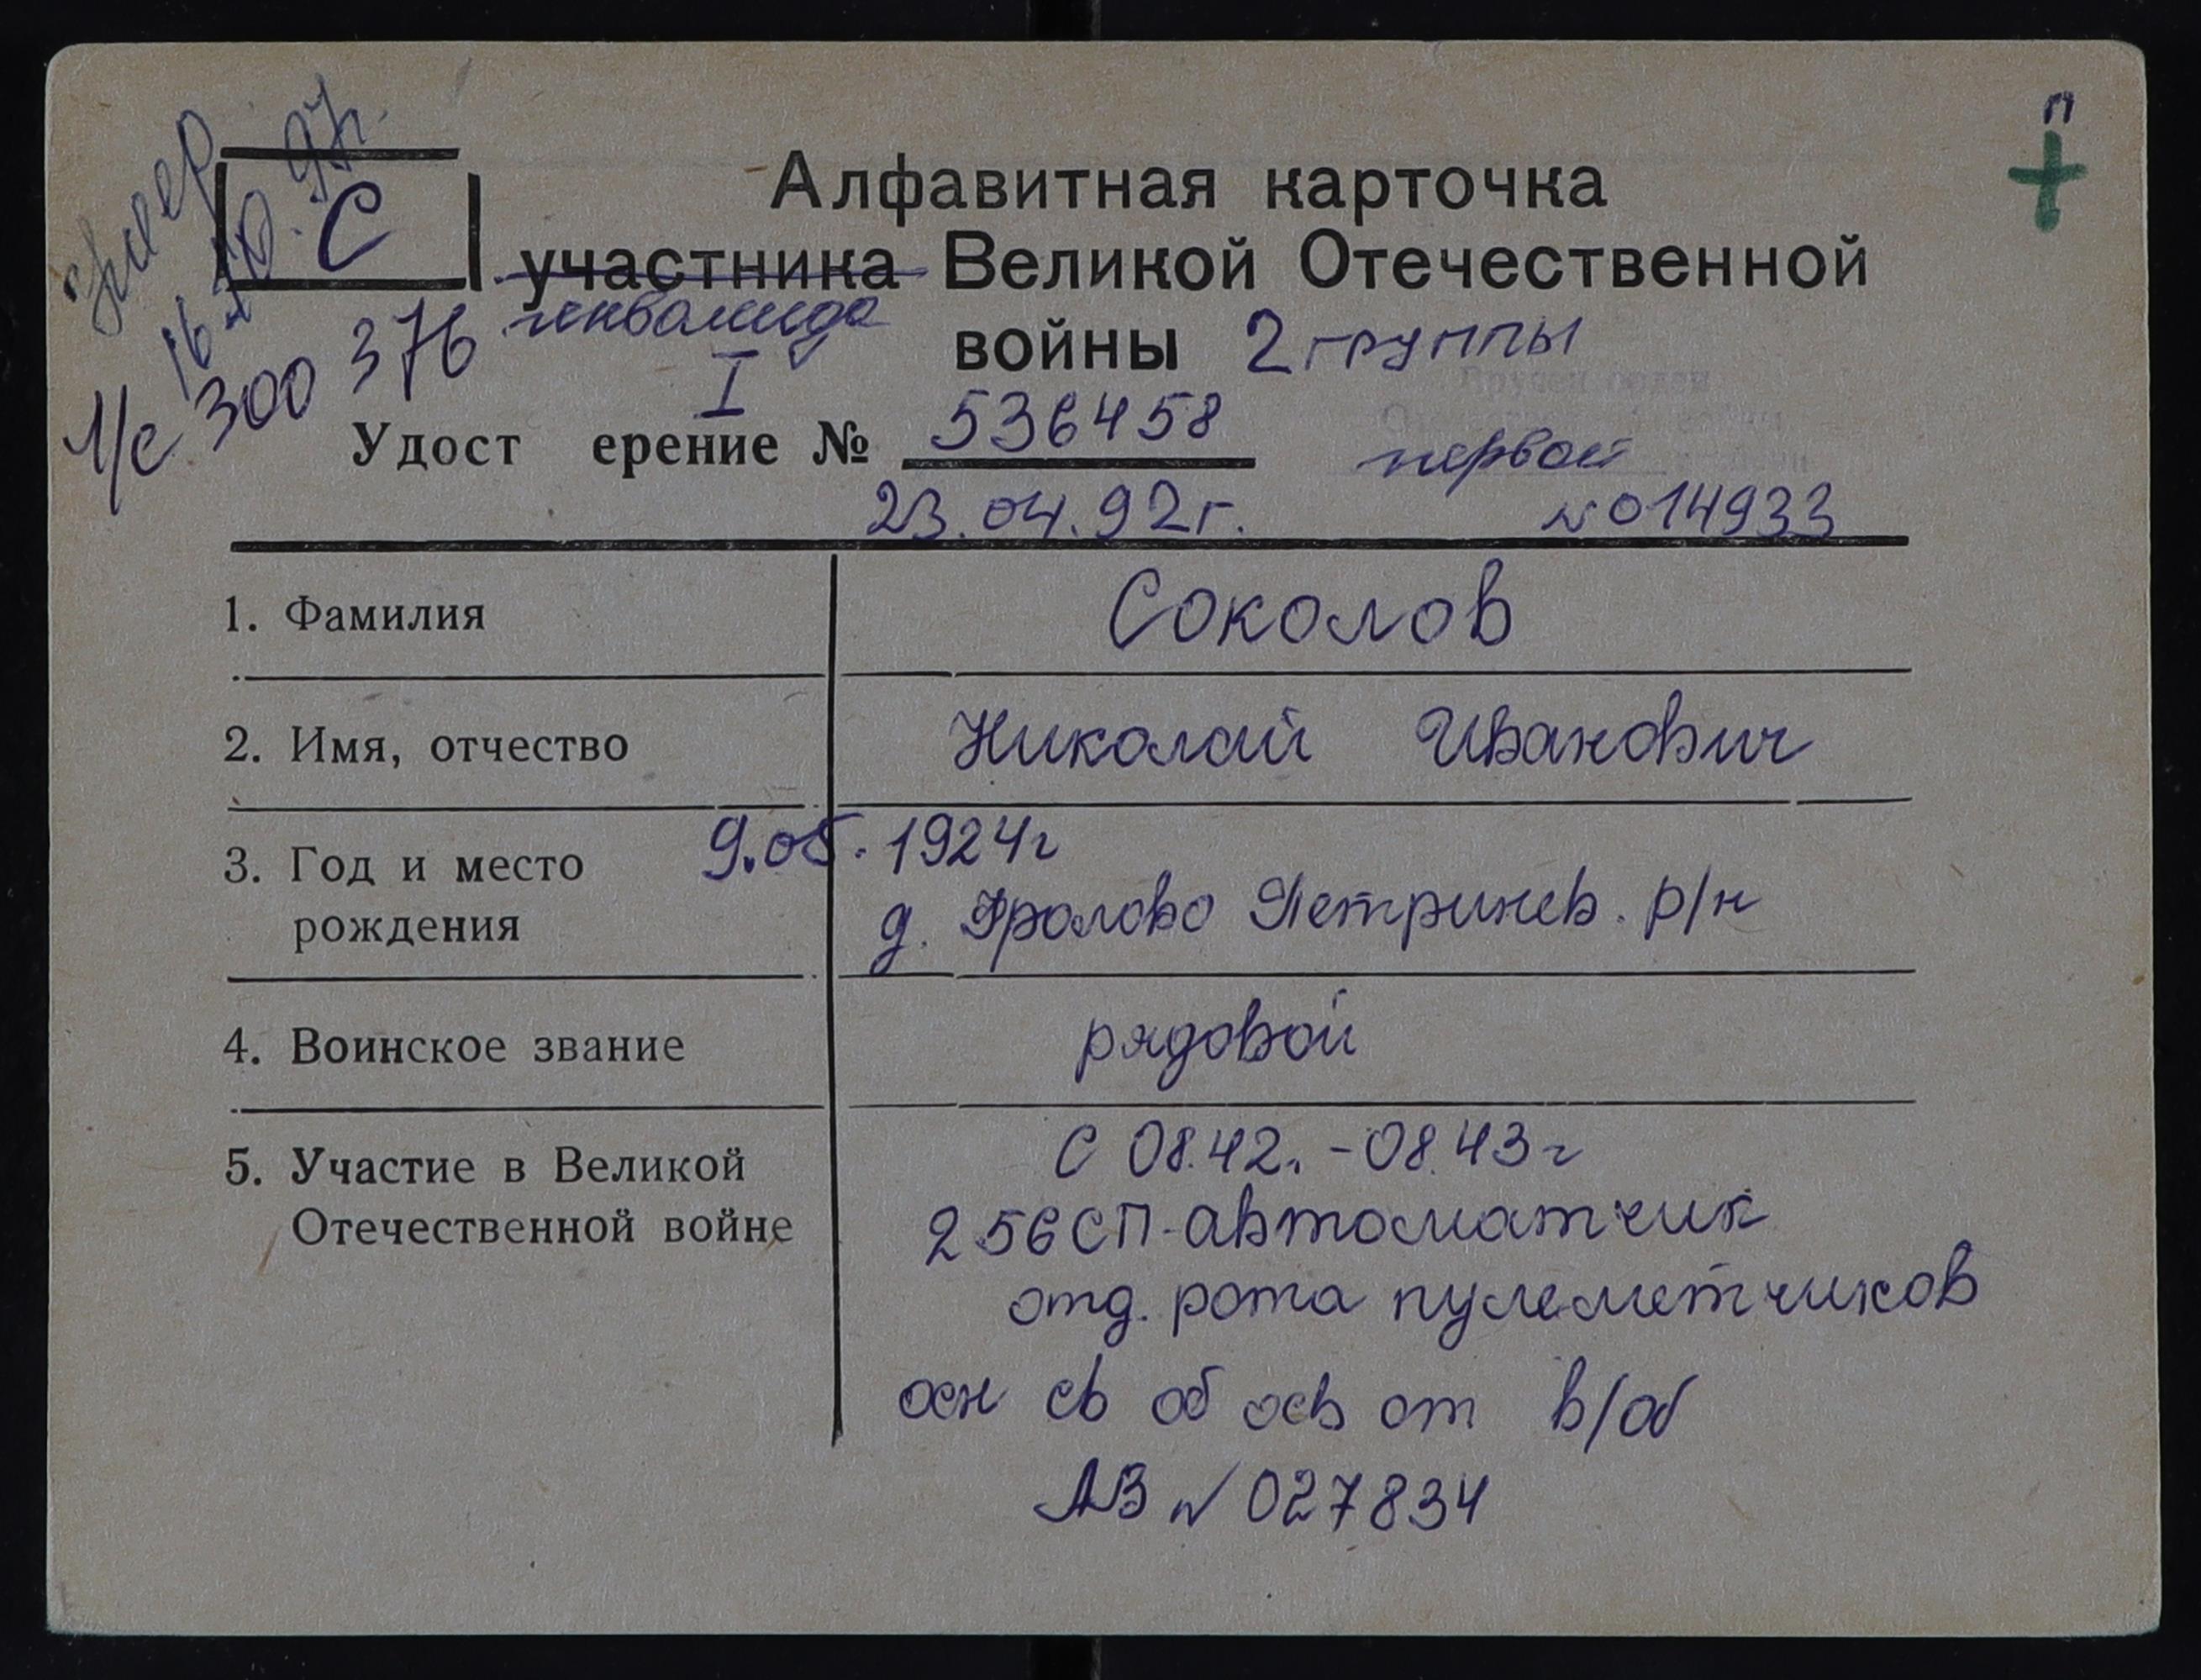 умер
16.10.97г.
С
П
Алфавитная карточка
участника Великой Отечественной
инвалида
войны 2 группы
л/с 300 376
I
Удост ерение № 536458
Вручен орден
первой
23.04.92г. №014933
1. Фамилия Соколов
2. Имя, отчество Николай Иванович
3. Год и место 9.05.1924г
рождения д. Фролово Петринев. р/н
4. Воинское звание рядовой
5. Участие в Великой С 08.42. - 08.43г
Отечественной войне 256 СП - автоматчик
отд. рота пулеметчиков
осн св об осв от в/об
АВ № 027834